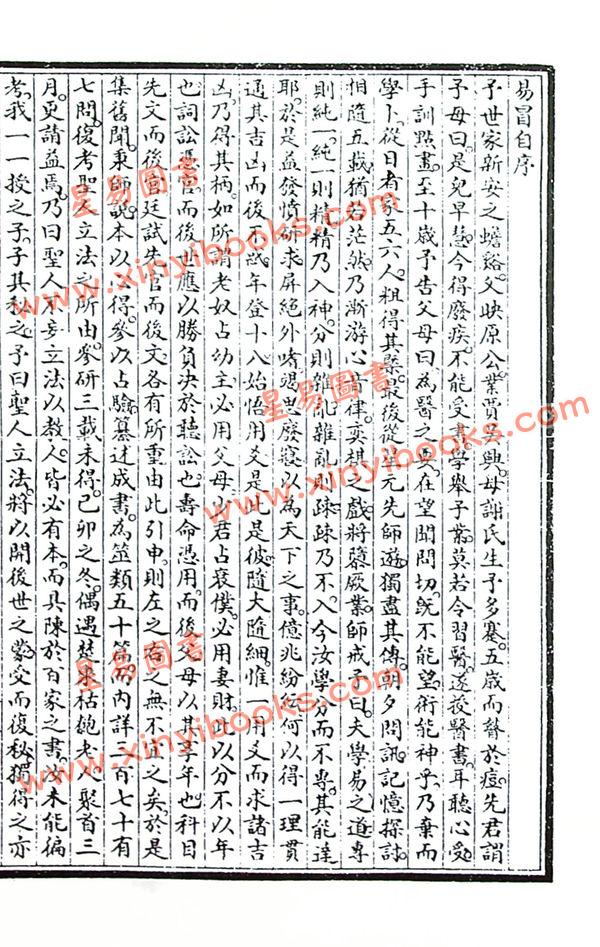 易冒自序
予世家新安之蟾谿父映原公業賈吳興母謝氏生予多蹇五歲而瞽於痘先君謂
予母曰是兒早慧今得廢疾不能受書學舉子業莫若令習醫遂授醫書耳聽心受
手訓點畫至十歲予告父母曰為醫之要在望聞問切既不能望術能神乎乃棄而
學卜從日者家五六人粗得其槩最後從 元先師遊獨盡其傳朝夕問訊記憶探討
相隨五載猶若茫然乃漸游心音律奕棋之戲將隳厥業師戒予曰夫學易之道專
則純一純一則精精乃入神分則雜亂雜亂則疎疎乃不入今汝學分而不專其能達
耶於是益發憤研求屏絕外嗜 廢寢以為天下之事億兆紛紜何以得一理貫
通其吉凶而後不 年登十八始悟用爻是此是彼隨大隨細惟一用爻而求諸吉
凶乃得其柄如所謂老奴占幼主必用父母少君占衰僕必用妻財此以分不以年
也詞訟憑官而後世應以勝負決於聽訟也壽命憑用而後父母以其享年也科目
先文而後官廷試先官而後文各有所重由此引申則左之右之無不宜之矣於是
集舊聞秉師說本以心得參以占驗纂述成書為筮類五十篇而內詳三百七十有
七問復考聖人立法之所由參研三載未得己卯之冬偶遇楚東枯匏老人聚首三
月更請益焉乃曰聖人不妄立法以教人皆必有本而具陳於百家之書汝未能徧
考我一一授之子子其私之予曰聖人立法將以開後世之蒙受而復秘獨得之亦
星易圖書
www.xinyibooks.com
星易圖書
www.xinyibooks.com
www.xinyibooks.com
星易圖書
www.xinyibooks.com